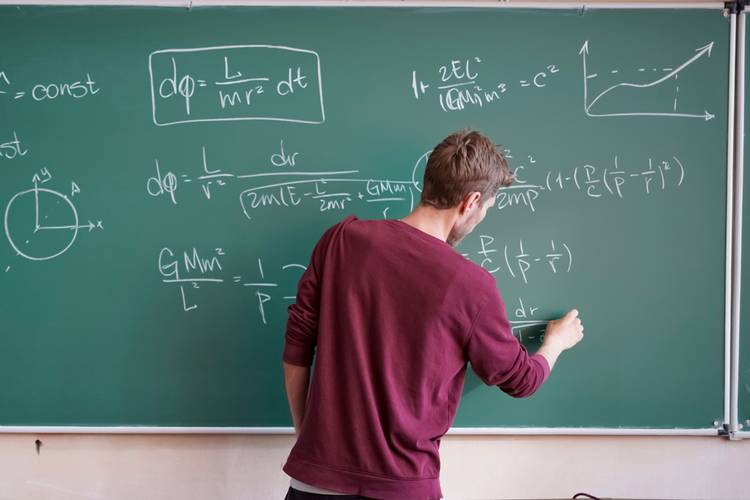 = const
dφ = L/mr² dt
1+ 2EL²/(GM)²m³ = c²
st
y
A
x
dφ = L/r² dr/√(2m(E - L²/2mr² + GMm/r)
c²/2mp (1-(P/C(1/P - 1/r)²)
GMm²/L² = 1/P
P/C (1/P - 1/r)
dr